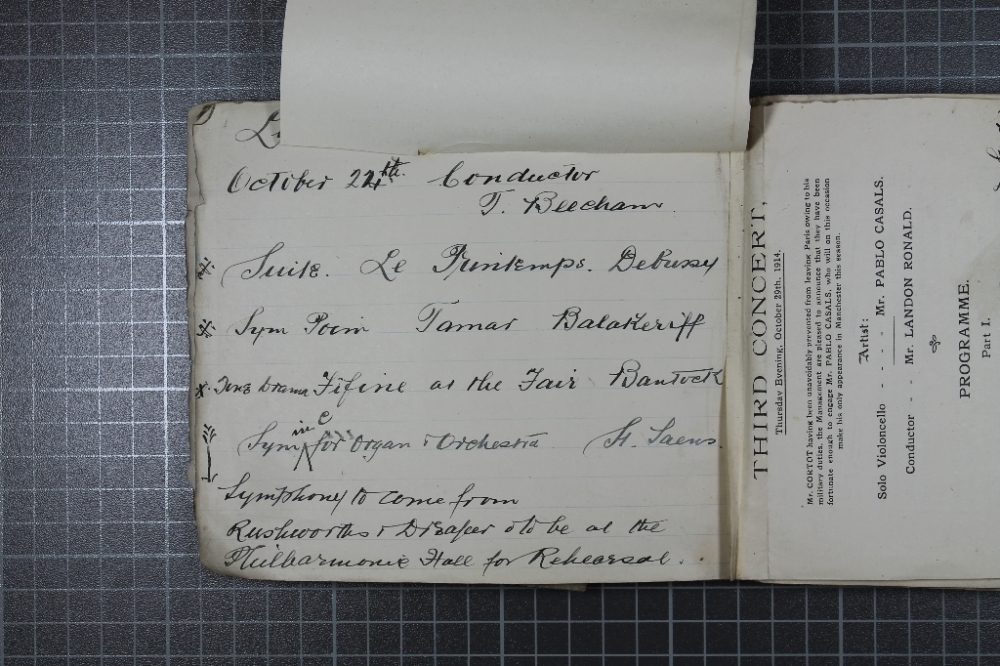 October 22th. Conductor
T. Beecham.
Suite. Le Printemps. Debussy
Sym Poem Tamar Balakeriff
Tone Drama Fifine at the Fair Bantock
Sym in C for Organ & Orchestra St. Saens.
Symphony to come from
Rushworths & Dreaper & to be at the
Philharmonic Hall for Rehearsal.
THIRD CONCERT,
Thursday Evening, October 29th, 1914.
Mr. CORTOT having been unavoidably prevented from leaving Paris owing to his
military duties, the Management are pleased to announce that they have been
fortunate enough to engage Mr. PABLO CASALS, who will on this occasion
make his only appearance in Manchester this season.
Artist:
Solo Violoncello - - - Mr. PABLO CASALS.
Conductor - - Mr. LANDON RONALD.
PROGRAMME.
Part I.